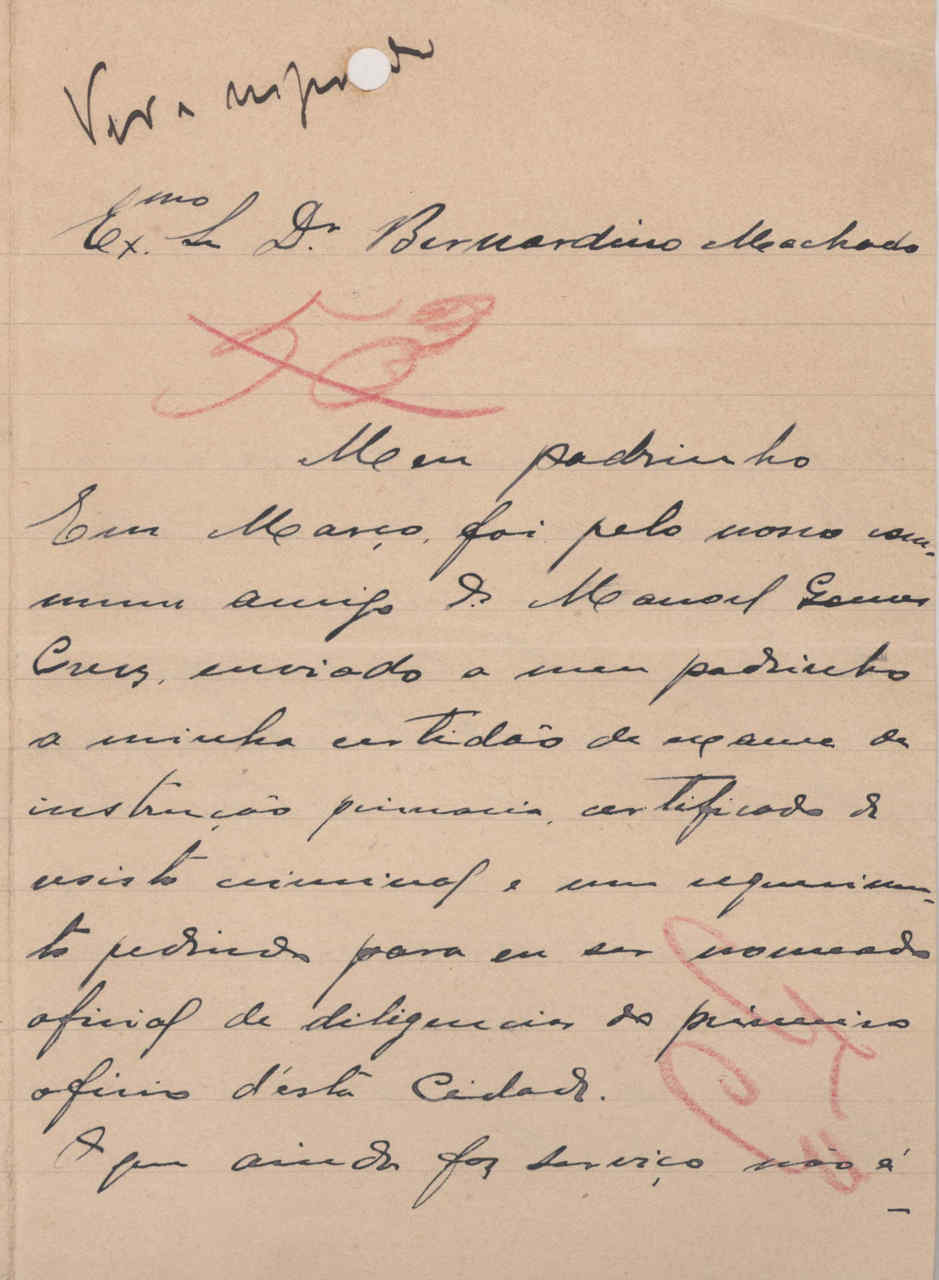 Ver e responde
Ex.mo Sr Dr. Bernardino Machado
Meu padrinho
Em Março, foi pelo nosso com-
mum amigo Dr Manoel Gomes
Cruz, enviado a meu padrinho
a minha certidão de exame de
instrução primaria, certificado de
registo criminal e um requerimen-
to pedindo para eu ser nomeado
oficial de diligencias do primeiro
oficio d'ésta Cidade.
O que ainda faz serviço não é